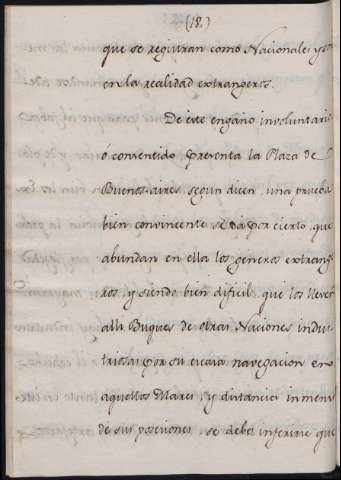 (18.)
que se reguran como Nacionales y son
en la realidad extrangeros.
De este engaño involuntario
ó consentido, presenta la Plaza de
Buenos-aires, segun dicen, una prueba
bien convincente se da por cierto, que
abundan en ella los generos extrange
ros, y siendo bien dificil, que los lleven
alli Buques de otras Naciones indus
triosas por su escasa navegacion en
aquellos Mares, y distancia inmensa
de sus posesiones se debe inferir que